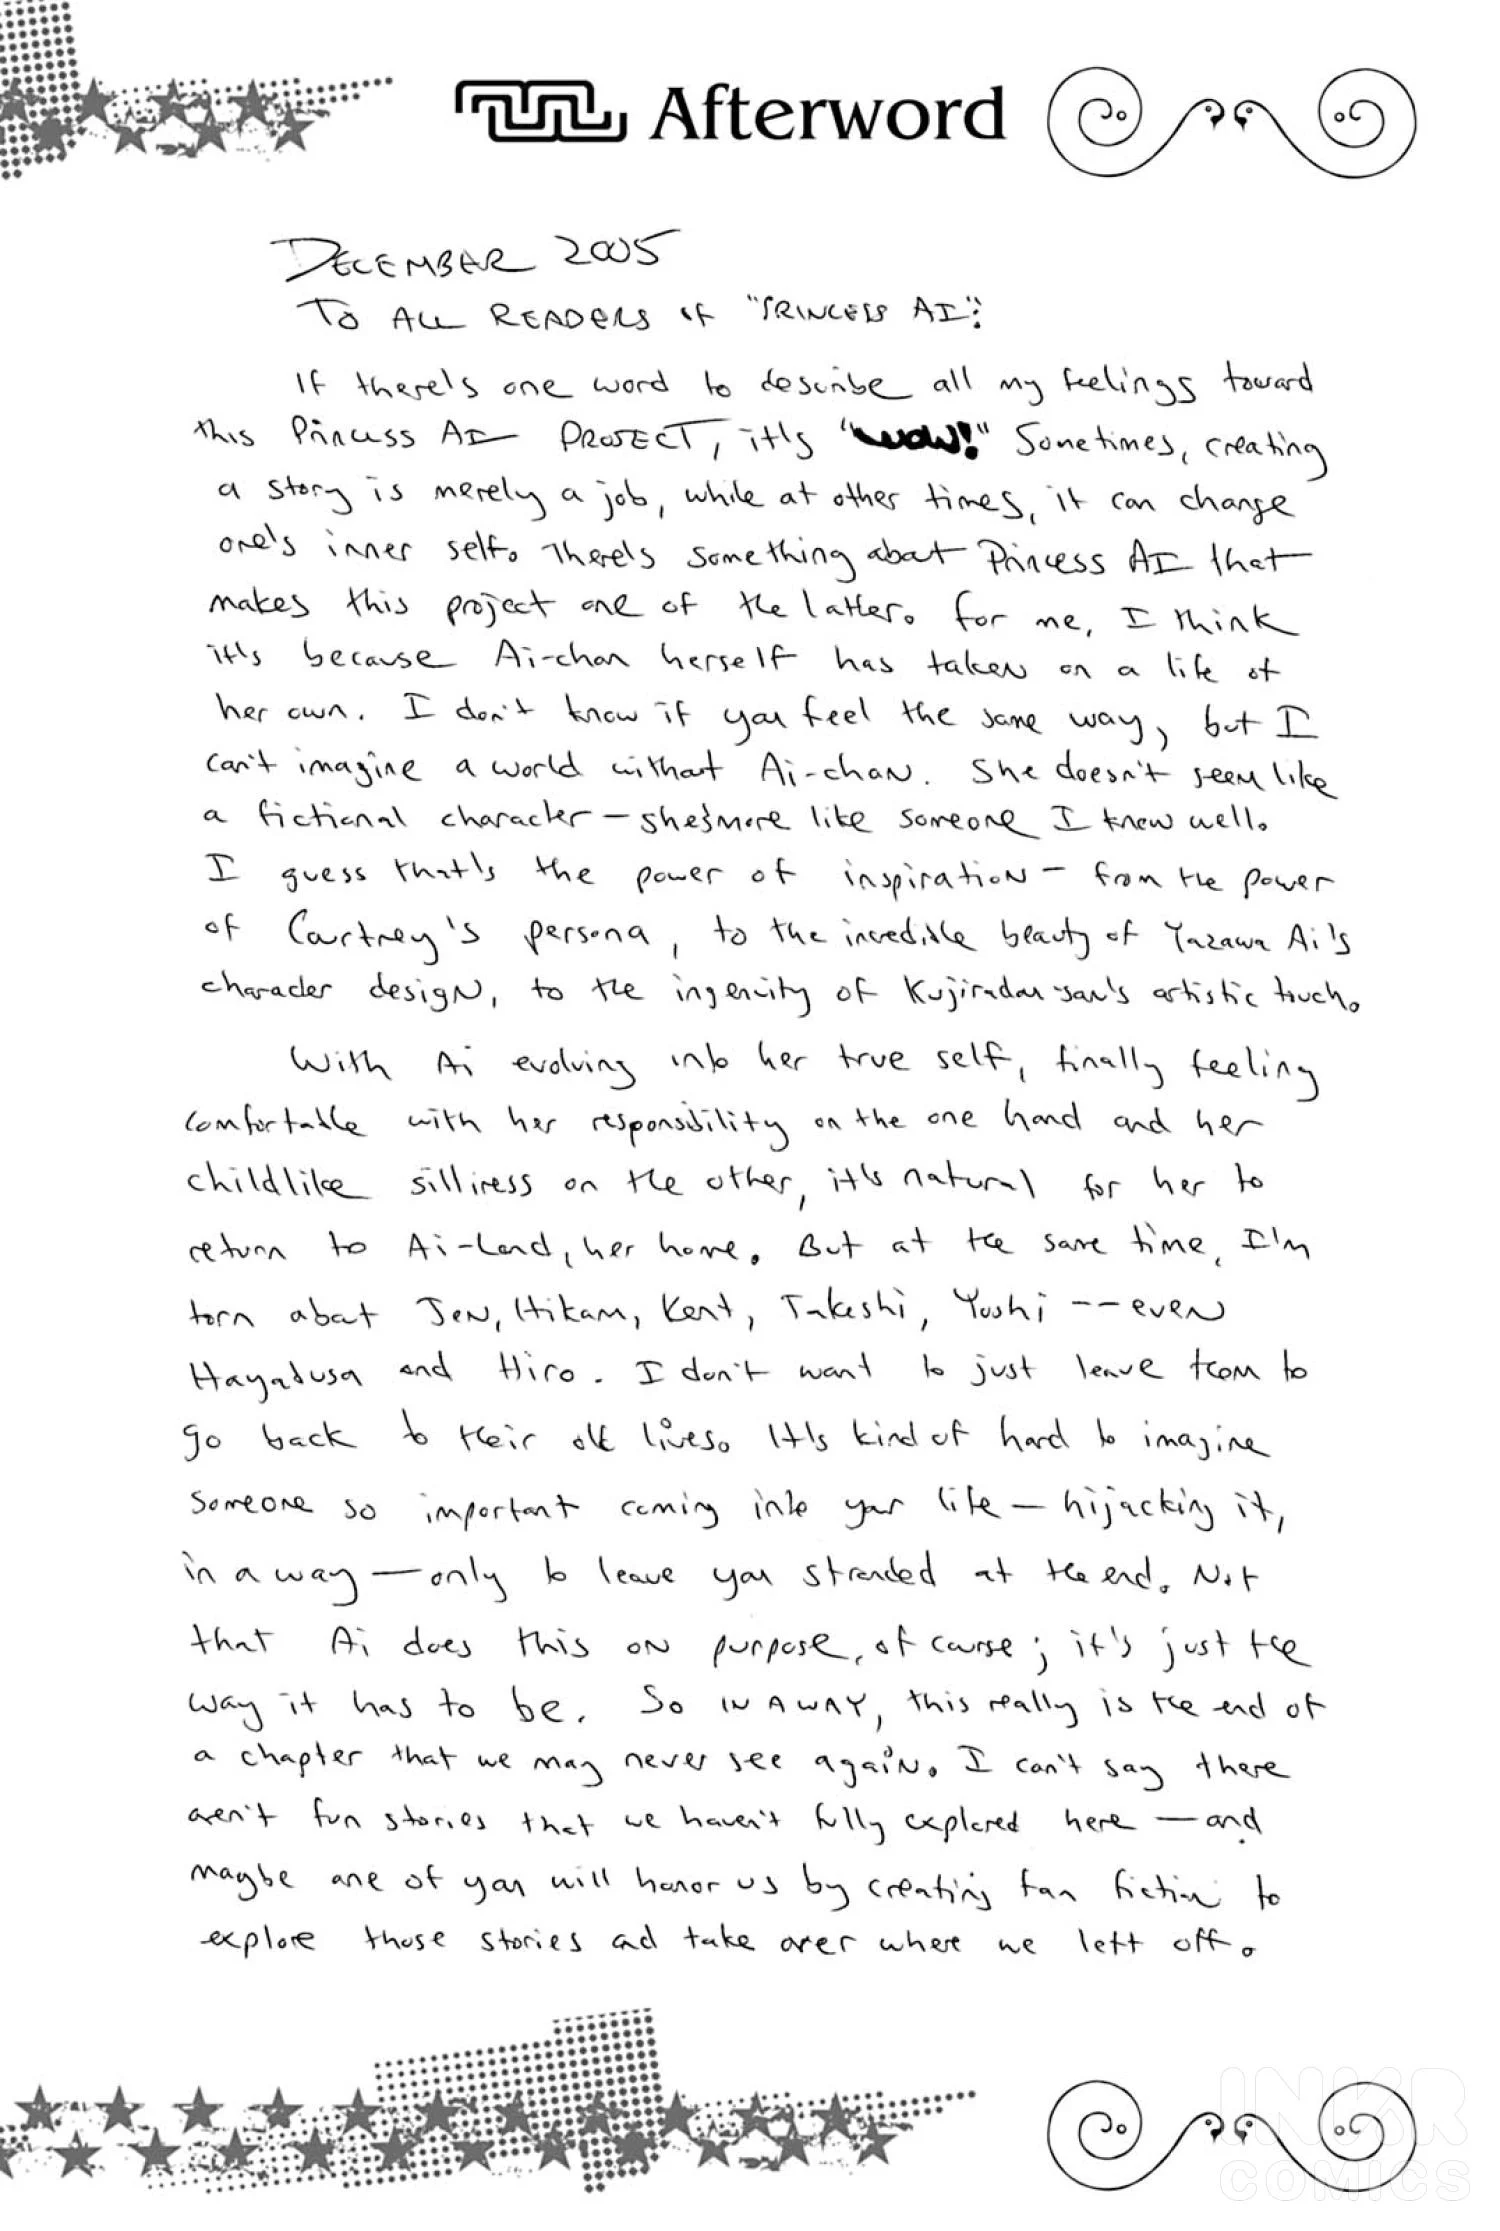 Afterword
DECEMBER 2005
TO ALL READERS OF "PRINCESS AI":
If there's one word to describe all my feelings toward
this Princess AI PROJECT, it's "WOW!" Sometimes, creating
a story is merely a job, while at other times, it can change
one's inner self. There's something about Princess AI that
makes this project one of the latter. For me, I think
it's because Ai-chan herself has taken on a life of
her own. I don't know if you feel the same way, but I
can't imagine a world without Ai-chan. She doesn't seem like
a fictional character - she's more like someone I know well.
I guess that's the power of inspiration - from the power
of Courtney's persona, to the incredible beauty of Yazawa Ai's
character design, to the ingenuity of Kujiradou-san's artistic touch.
With Ai evolving into her true self, finally feeling
comfortable with her responsibility on the one hand and her
childlike silliness on the other, it's natural for her to
return to Ai-Land, her home. But at the same time, I'm
torn about Jen, Hikaru, Kent, Takeshi, Yoshi -- even
Hayabusa and Hiro. I don't want to just leave them to
go back to their old lives. It's kind of hard to imagine
someone so important coming into your life - hijacking it,
in a way - only to leave you stranded at the end. Not
that Ai does this on purpose, of course; it's just the
way it has to be. So IN A WAY, this really is the end of
a chapter that we may never see again. I can't say there
aren't fun stories that we haven't fully explored here - and
maybe one of you will honor us by creating fan fiction to
explore those stories and take over where we left off.
INKR
COMICS